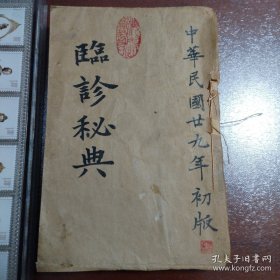 中華民國廿九年初版
臨診秘典
孔夫子旧书网